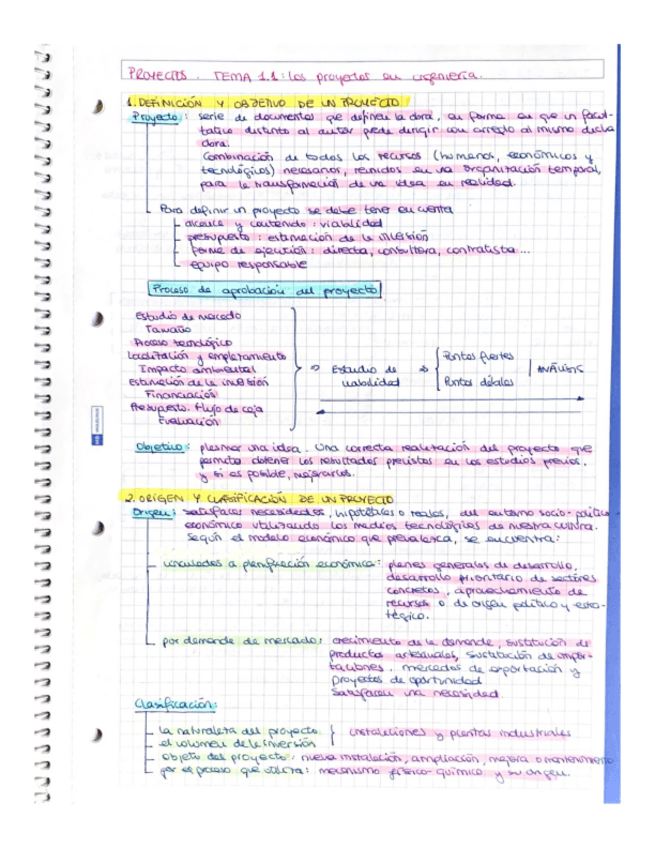 PROYECTOS. TEMA 1.1: Los proyectos en ingeniería.
1. DEFINICIÓN Y OBJETIVO DE UN PROYECTO
Proyecto: serie de documentos que definen la obra, en forma en que un facul-
tativo distinto al autor pueda dirigir con arreglo al mismo dicha
obra.
Combinación de todos los recursos (humanos, económicos y
tecnológicos) necesarios, reunidos en una organización temporal,
para la transformación de una idea en realidad.
Para definir un proyecto se debe tener en cuenta
alcance y contenido: viabilidad
presupuesto: estimación de la inversión
forma de ejecución: directa, consultora, contratista...
equipo responsable
Proceso de aprobación del proyecto
Estudio de mercado
Tamaño
Proceso tecnológico
Localización y emplazamiento
Impacto ambiental
estimación de la inversión
Financiación
Presupuesto. Flujo de caja
Evaluación
⇒ Estudio de viabilidad ⇒
Puntos fuertes
Puntos débiles
ANÁLISIS
Objetivo: plasmar una idea. Una correcta realización del proyecto que
permita obtener los resultados previstos en los estudios previos,
y si es posible, mejorarlos.
2. ORIGEN Y CLASIFICACIÓN DE UN PROYECTO
Origen: satisfacer necesidades, hipotéticas o reales, del entorno socio-político-
económico utilizando los medios tecnológicos de nuestra cultura.
Según el modelo económico que prevalezca, se encuentra:
vinculados a planificación económica: planes generales de desarrollo,
desarrollo prioritario de sectores
concretos, aprovechamiento de
recursos o de origen político y estra-
tégico.
por demanda de mercado: crecimiento de la demanda, sustitución de
productos artesanales, sustitución de impor-
taciones, mercados de exportación y
proyectos de oportunidad
Satisfacen una necesidad
Clasificación:
la naturaleza del proyecto } instalaciones y plantas industriales
el volumen de la inversión
objeto del proyecto: nueva instalación, ampliación, mejora o mantenimiento
por el proceso que utiliza: mecanismo físico-químico y su origen.